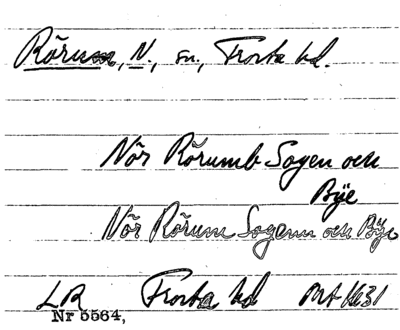 Rörum, N., sn., Frosta hd.
Nör Rörumb Sogen och
Bÿe
Nör Rörum Sogenn och Bÿe
LR Frosta hd 1631
Nr 5564,